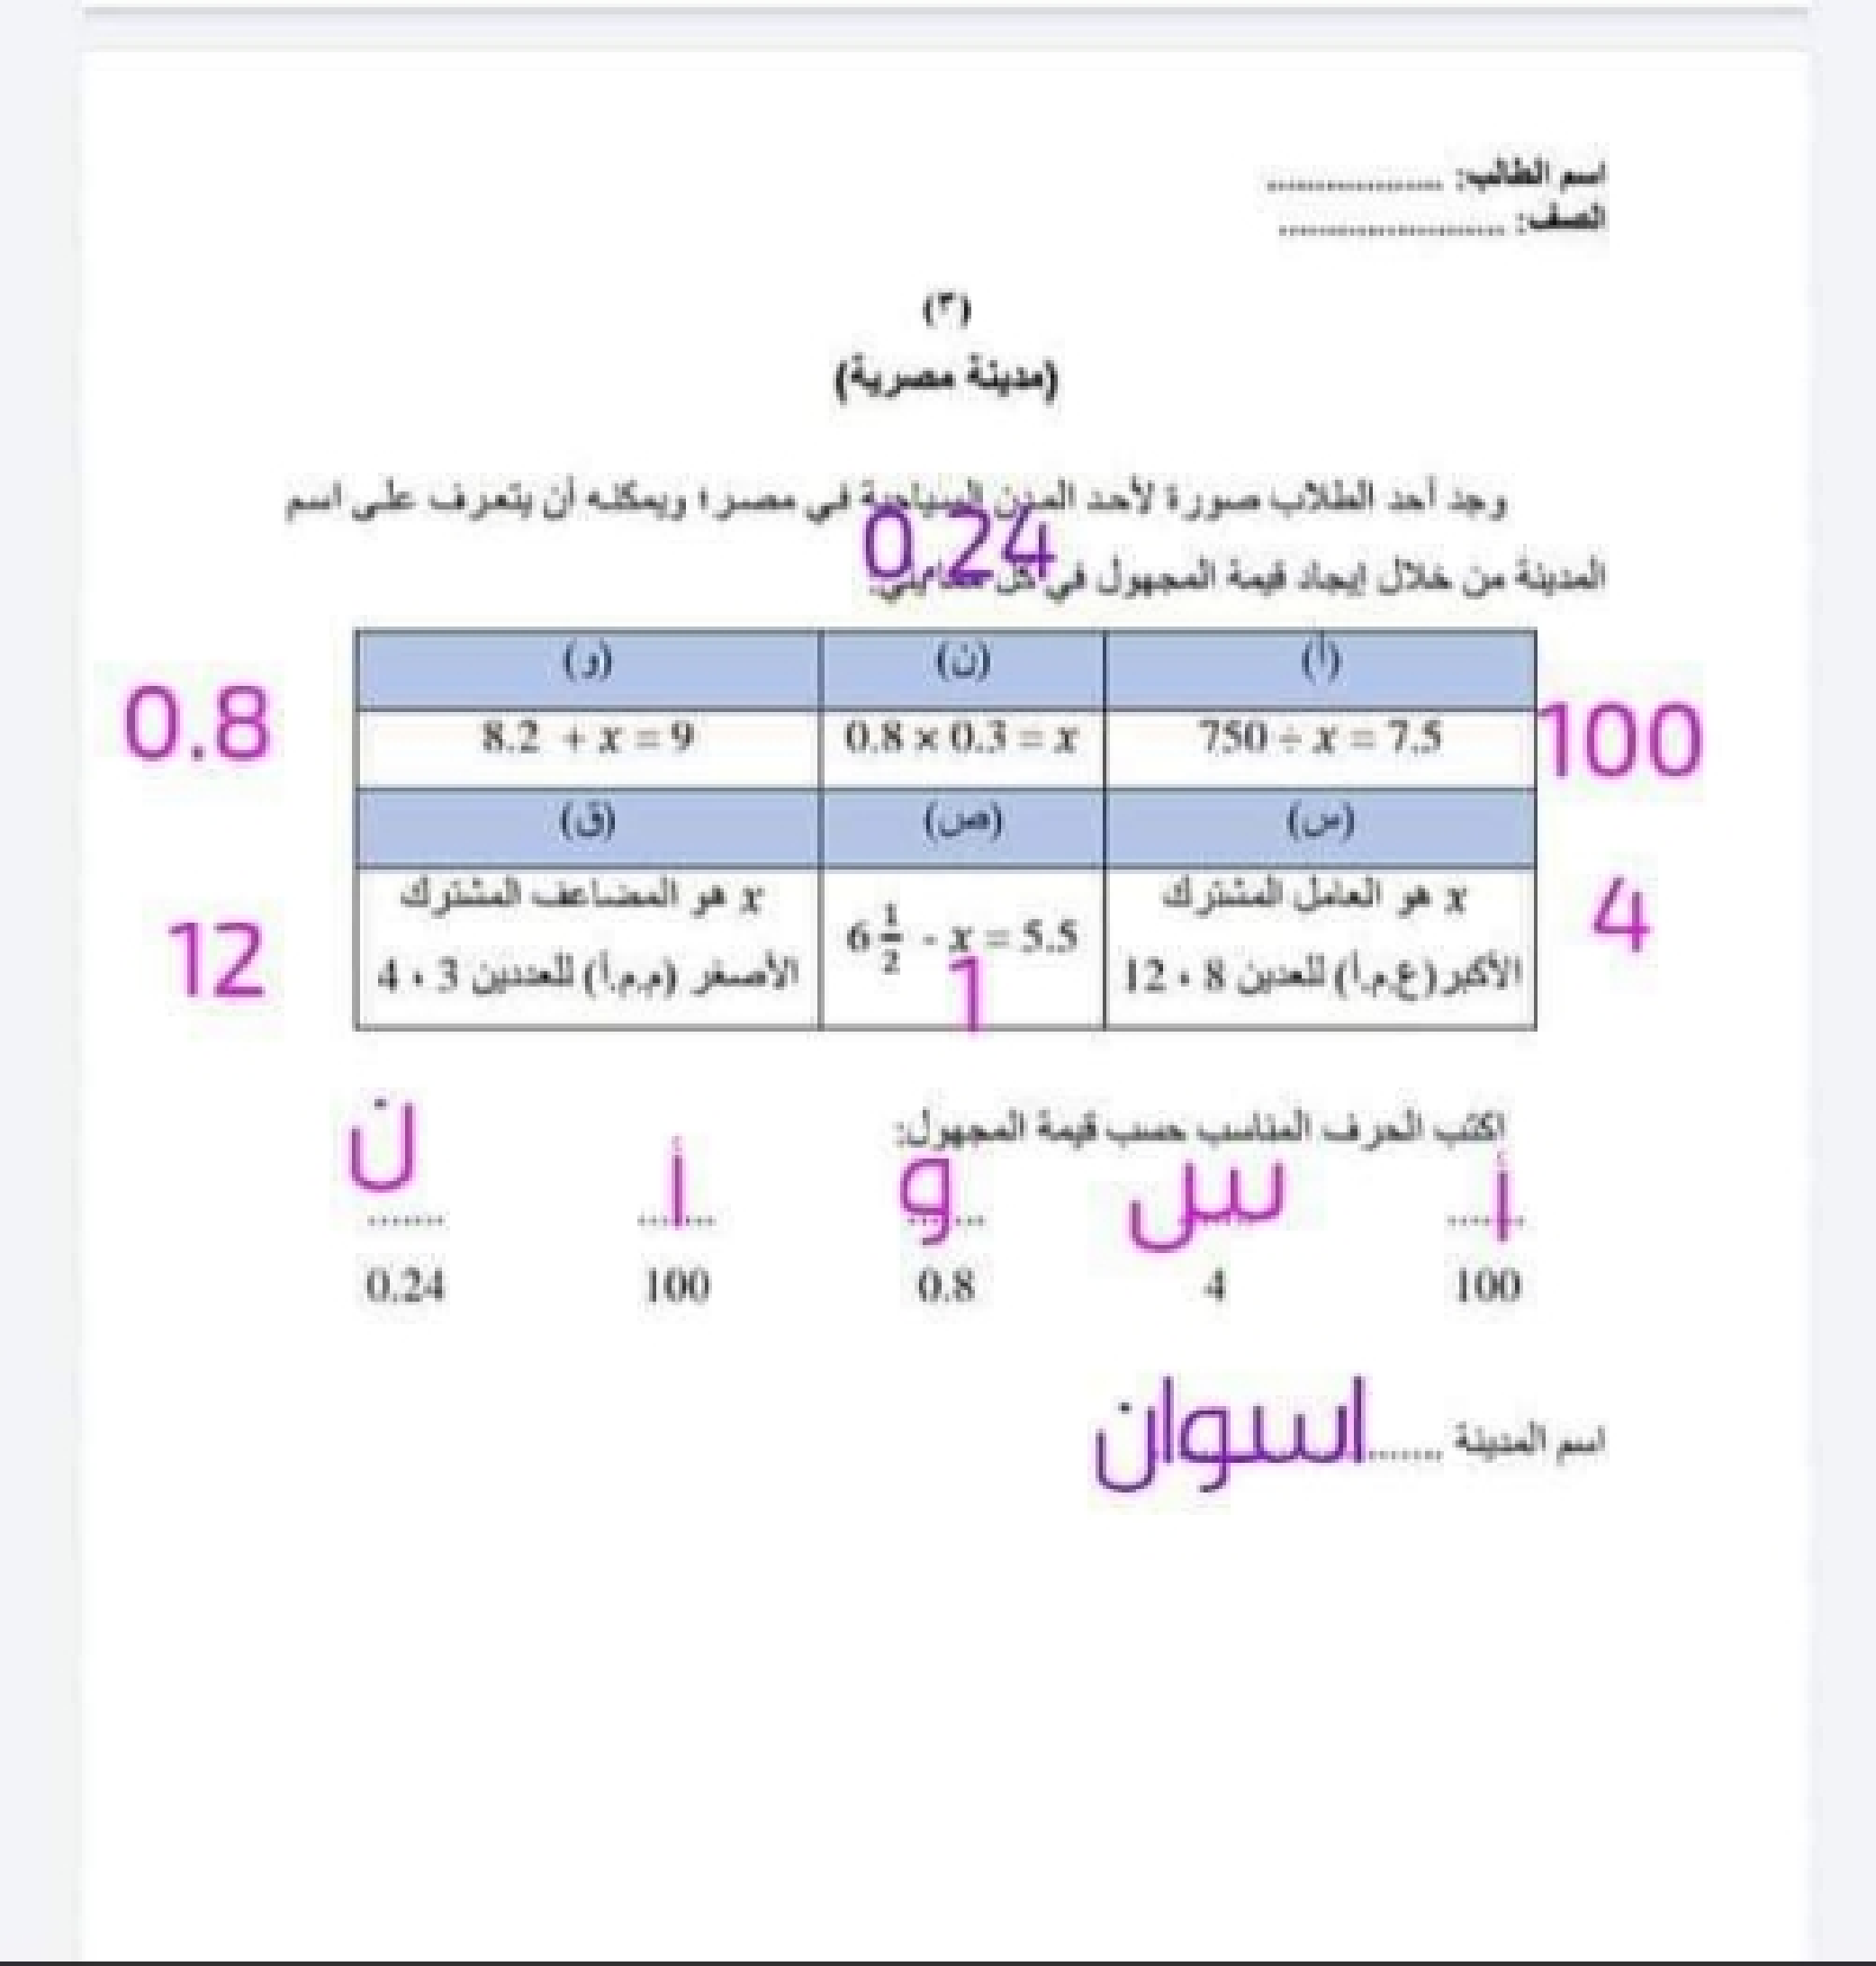 اسم الطالب: ..................
الصف: .......................
(٣)
(مدينة مصرية)
وجد أحد الطلاب صورة لأحد المدن السياحية في مصر؛ ويمكنه أن يتعرف على اسم
0.24
المدينة من خلال إيجاد قيمة المجهول في كل مما يلي:
(أ) (ن) (و)
100 750 ÷ x = 7.5 0.8 × 0.3 = x 8.2 + x = 9 0.8
(س) (ص) (ق)
x هو العامل المشترك x هو المضاعف المشترك
4 6 1/2 - x = 5.5 12
الأكبر (ع.م.أ) للعدين 8 ، 12 1 الأصغر (م.م.أ) للعددين 3 ، 4
اكتب الحرف المناسب حسب قيمة المجهول:
أ س و أ ن
100 4 0.8 100 0.24
اسم المدينة .......اسوان